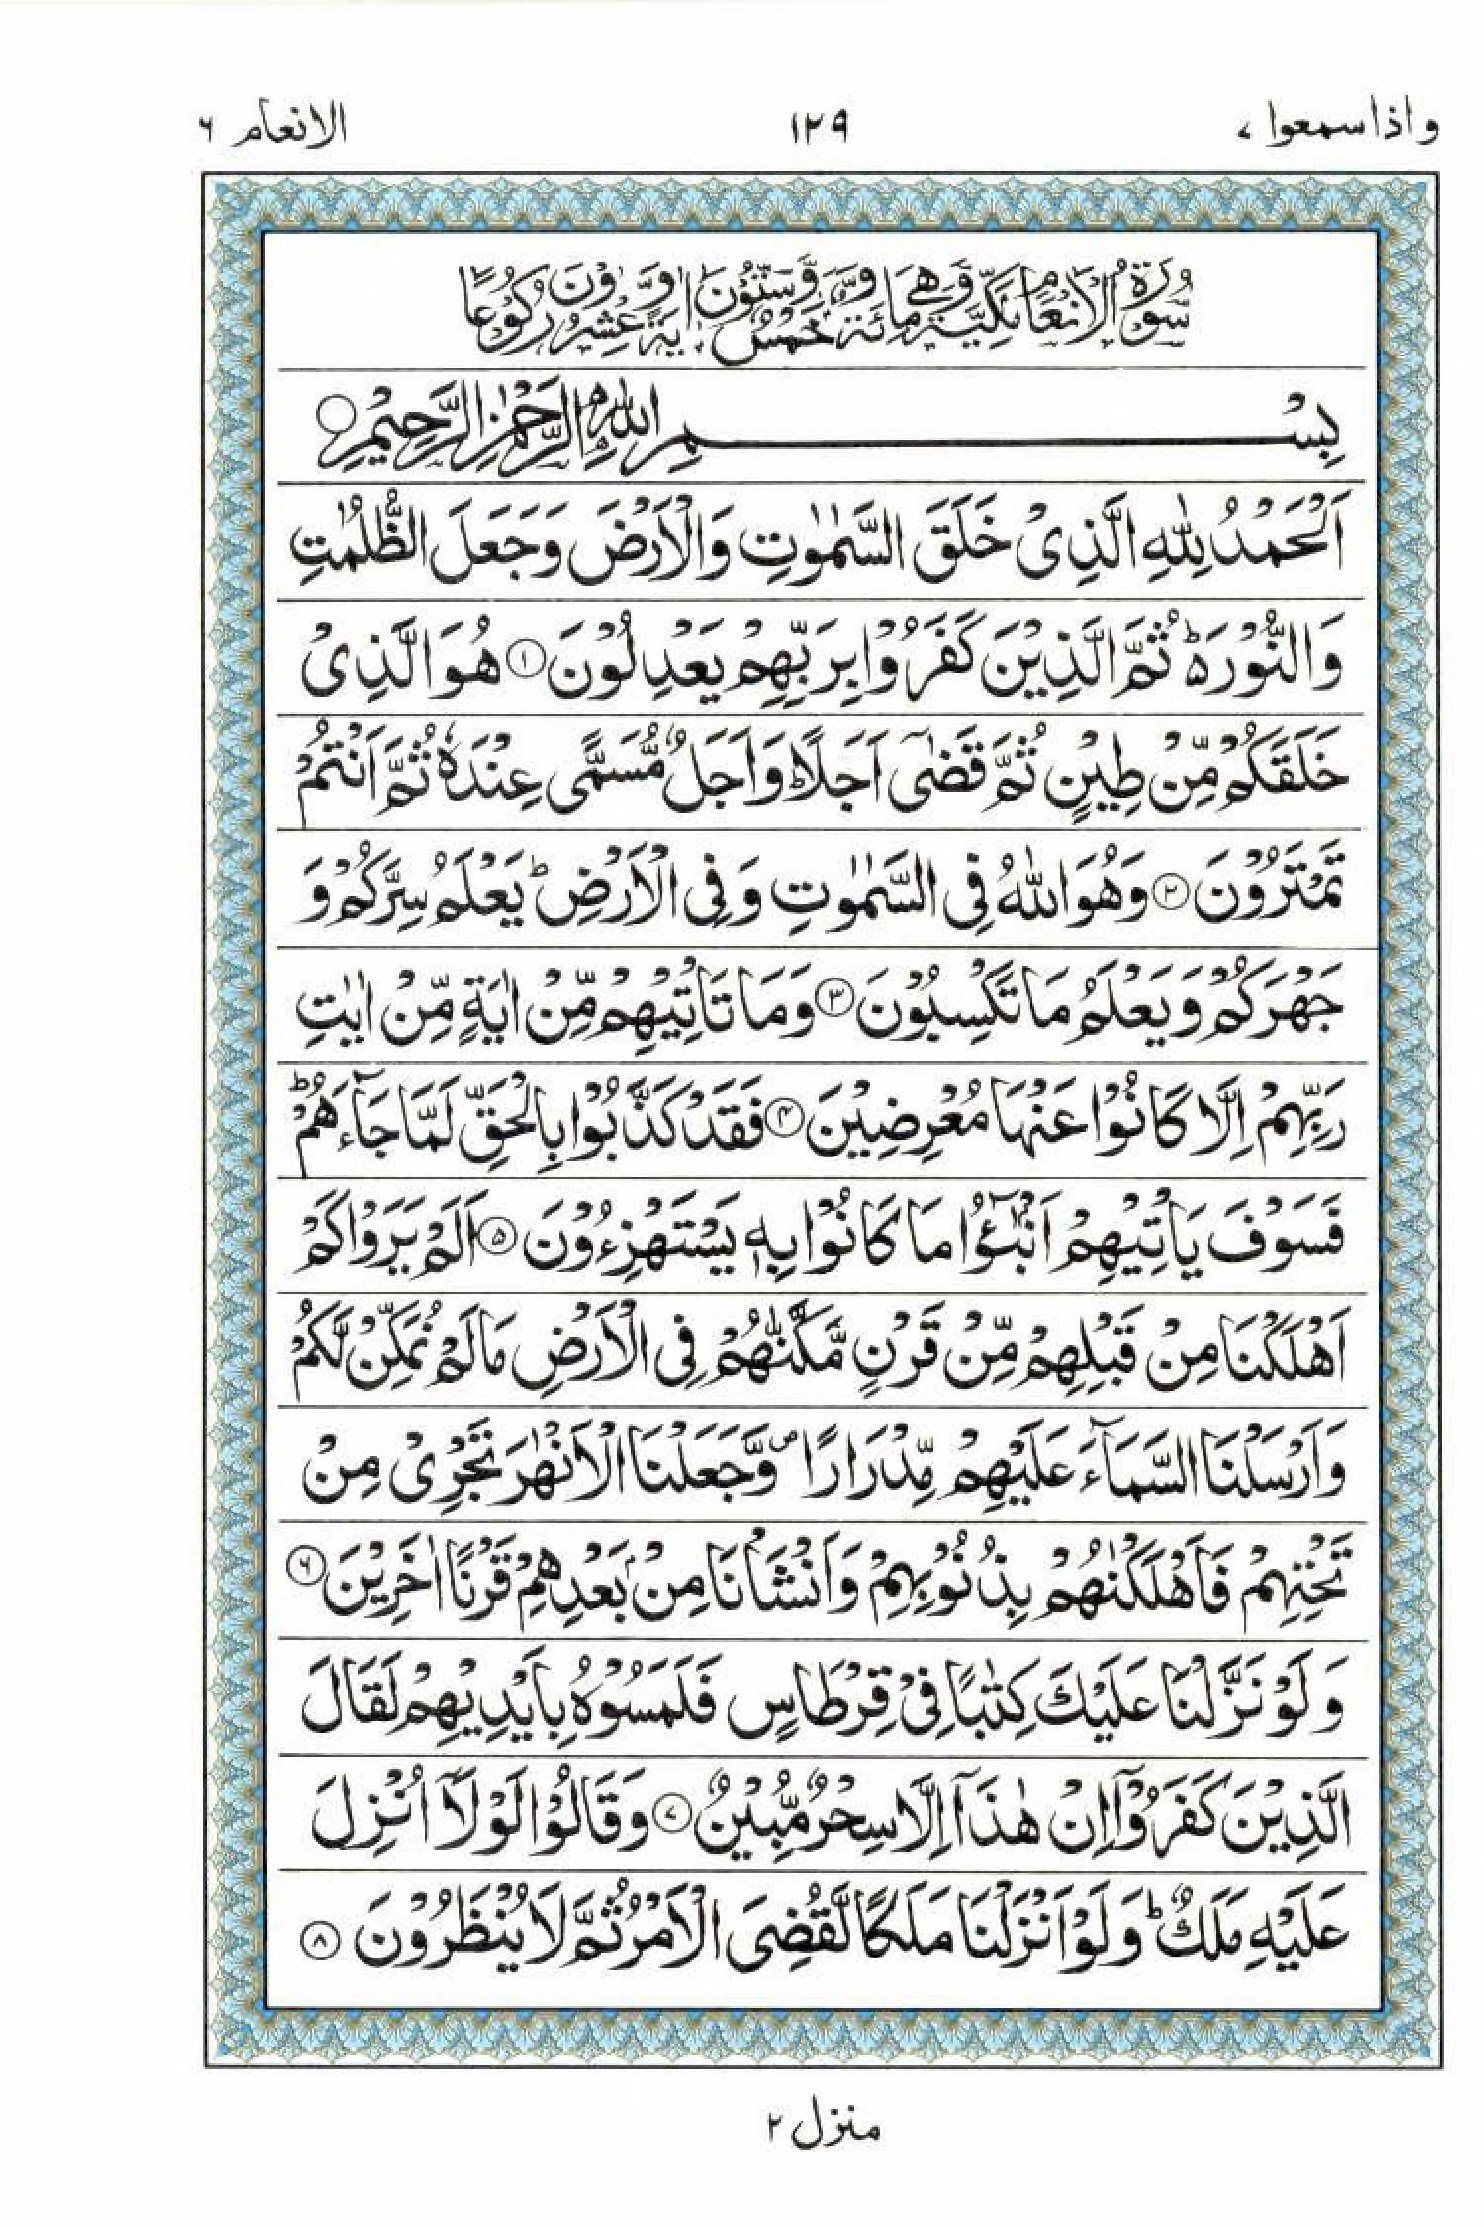 واذا سمعوا ۷
۱۲۹
الانعام ۶
سُوْرَةُ الْاَنْعَامِ مَكِّيَّةٌ وَّهِيَ مِائَةٌ وَّخَمْسٌ وَّسِتُّوْنَ اٰيَةً وَّعِشْرُوْنَ رُكُوْعًا
بِسْمِ اللّٰهِ الرَّحْمٰنِ الرَّحِيْمِ ○
اَلْحَمْدُ لِلّٰهِ الَّذِىْ خَلَقَ السَّمٰوٰتِ وَالْاَرْضَ وَجَعَلَ الظُّلُمٰتِ
وَالنُّوْرَ ۬ؕ ثُمَّ الَّذِيْنَ كَفَرُوْا بِرَبِّهِمْ يَعْدِلُوْنَ ۝۱ هُوَ الَّذِىْ
خَلَقَكُمْ مِّنْ طِيْنٍ ثُمَّ قَضٰۤى اَجَلًا ؕ وَاَجَلٌ مُّسَمًّى عِنْدَهٗ ثُمَّ اَنْتُمْ
تَمْتَرُوْنَ ۝۲ وَهُوَ اللّٰهُ فِى السَّمٰوٰتِ وَفِى الْاَرْضِ ؕ يَعْلَمُ سِرَّكُمْ وَ
جَهْرَكُمْ وَيَعْلَمُ مَا تَكْسِبُوْنَ ۝۳ وَمَا تَاْتِيْهِمْ مِّنْ اٰيَةٍ مِّنْ اٰيٰتِ
رَبِّهِمْ اِلَّا كَانُوْا عَنْهَا مُعْرِضِيْنَ ۝۴ فَقَدْ كَذَّبُوْا بِالْحَقِّ لَمَّا جَآءَهُمْ ؕ
فَسَوْفَ يَاْتِيْهِمْ اَنْۢبٰٓـؤُا مَا كَانُوْا بِهٖ يَسْتَهْزِءُوْنَ ۝۵ اَلَمْ يَرَوْا كَمْ
اَهْلَكْنَا مِنْ قَبْلِهِمْ مِّنْ قَرْنٍ مَّكَّنّٰهُمْ فِى الْاَرْضِ مَا لَمْ نُمَكِّنْ لَّكُمْ
وَاَرْسَلْنَا السَّمَآءَ عَلَيْهِمْ مِّدْرَارًا ۖ وَّجَعَلْنَا الْاَنْهٰرَ تَجْرِىْ مِنْ
تَحْتِهِمْ فَاَهْلَكْنٰهُمْ بِذُنُوْبِهِمْ وَاَنْشَاْنَا مِنْۢ بَعْدِهِمْ قَرْنًا اٰخَرِيْنَ ۝۶
وَلَوْ نَزَّلْنَا عَلَيْكَ كِتٰبًا فِىْ قِرْطَاسٍ فَلَمَسُوْهُ بِاَيْدِيْهِمْ لَقَالَ
الَّذِيْنَ كَفَرُوْۤا اِنْ هٰذَاۤ اِلَّا سِحْرٌ مُّبِيْنٌ ۝۷ وَقَالُوْا لَوْلَاۤ اُنْزِلَ
عَلَيْهِ مَلَكٌ ؕ وَلَوْ اَنْزَلْنَا مَلَكًا لَّقُضِىَ الْاَمْرُ ثُمَّ لَا يُنْظَرُوْنَ ۝۸
منزل ۲